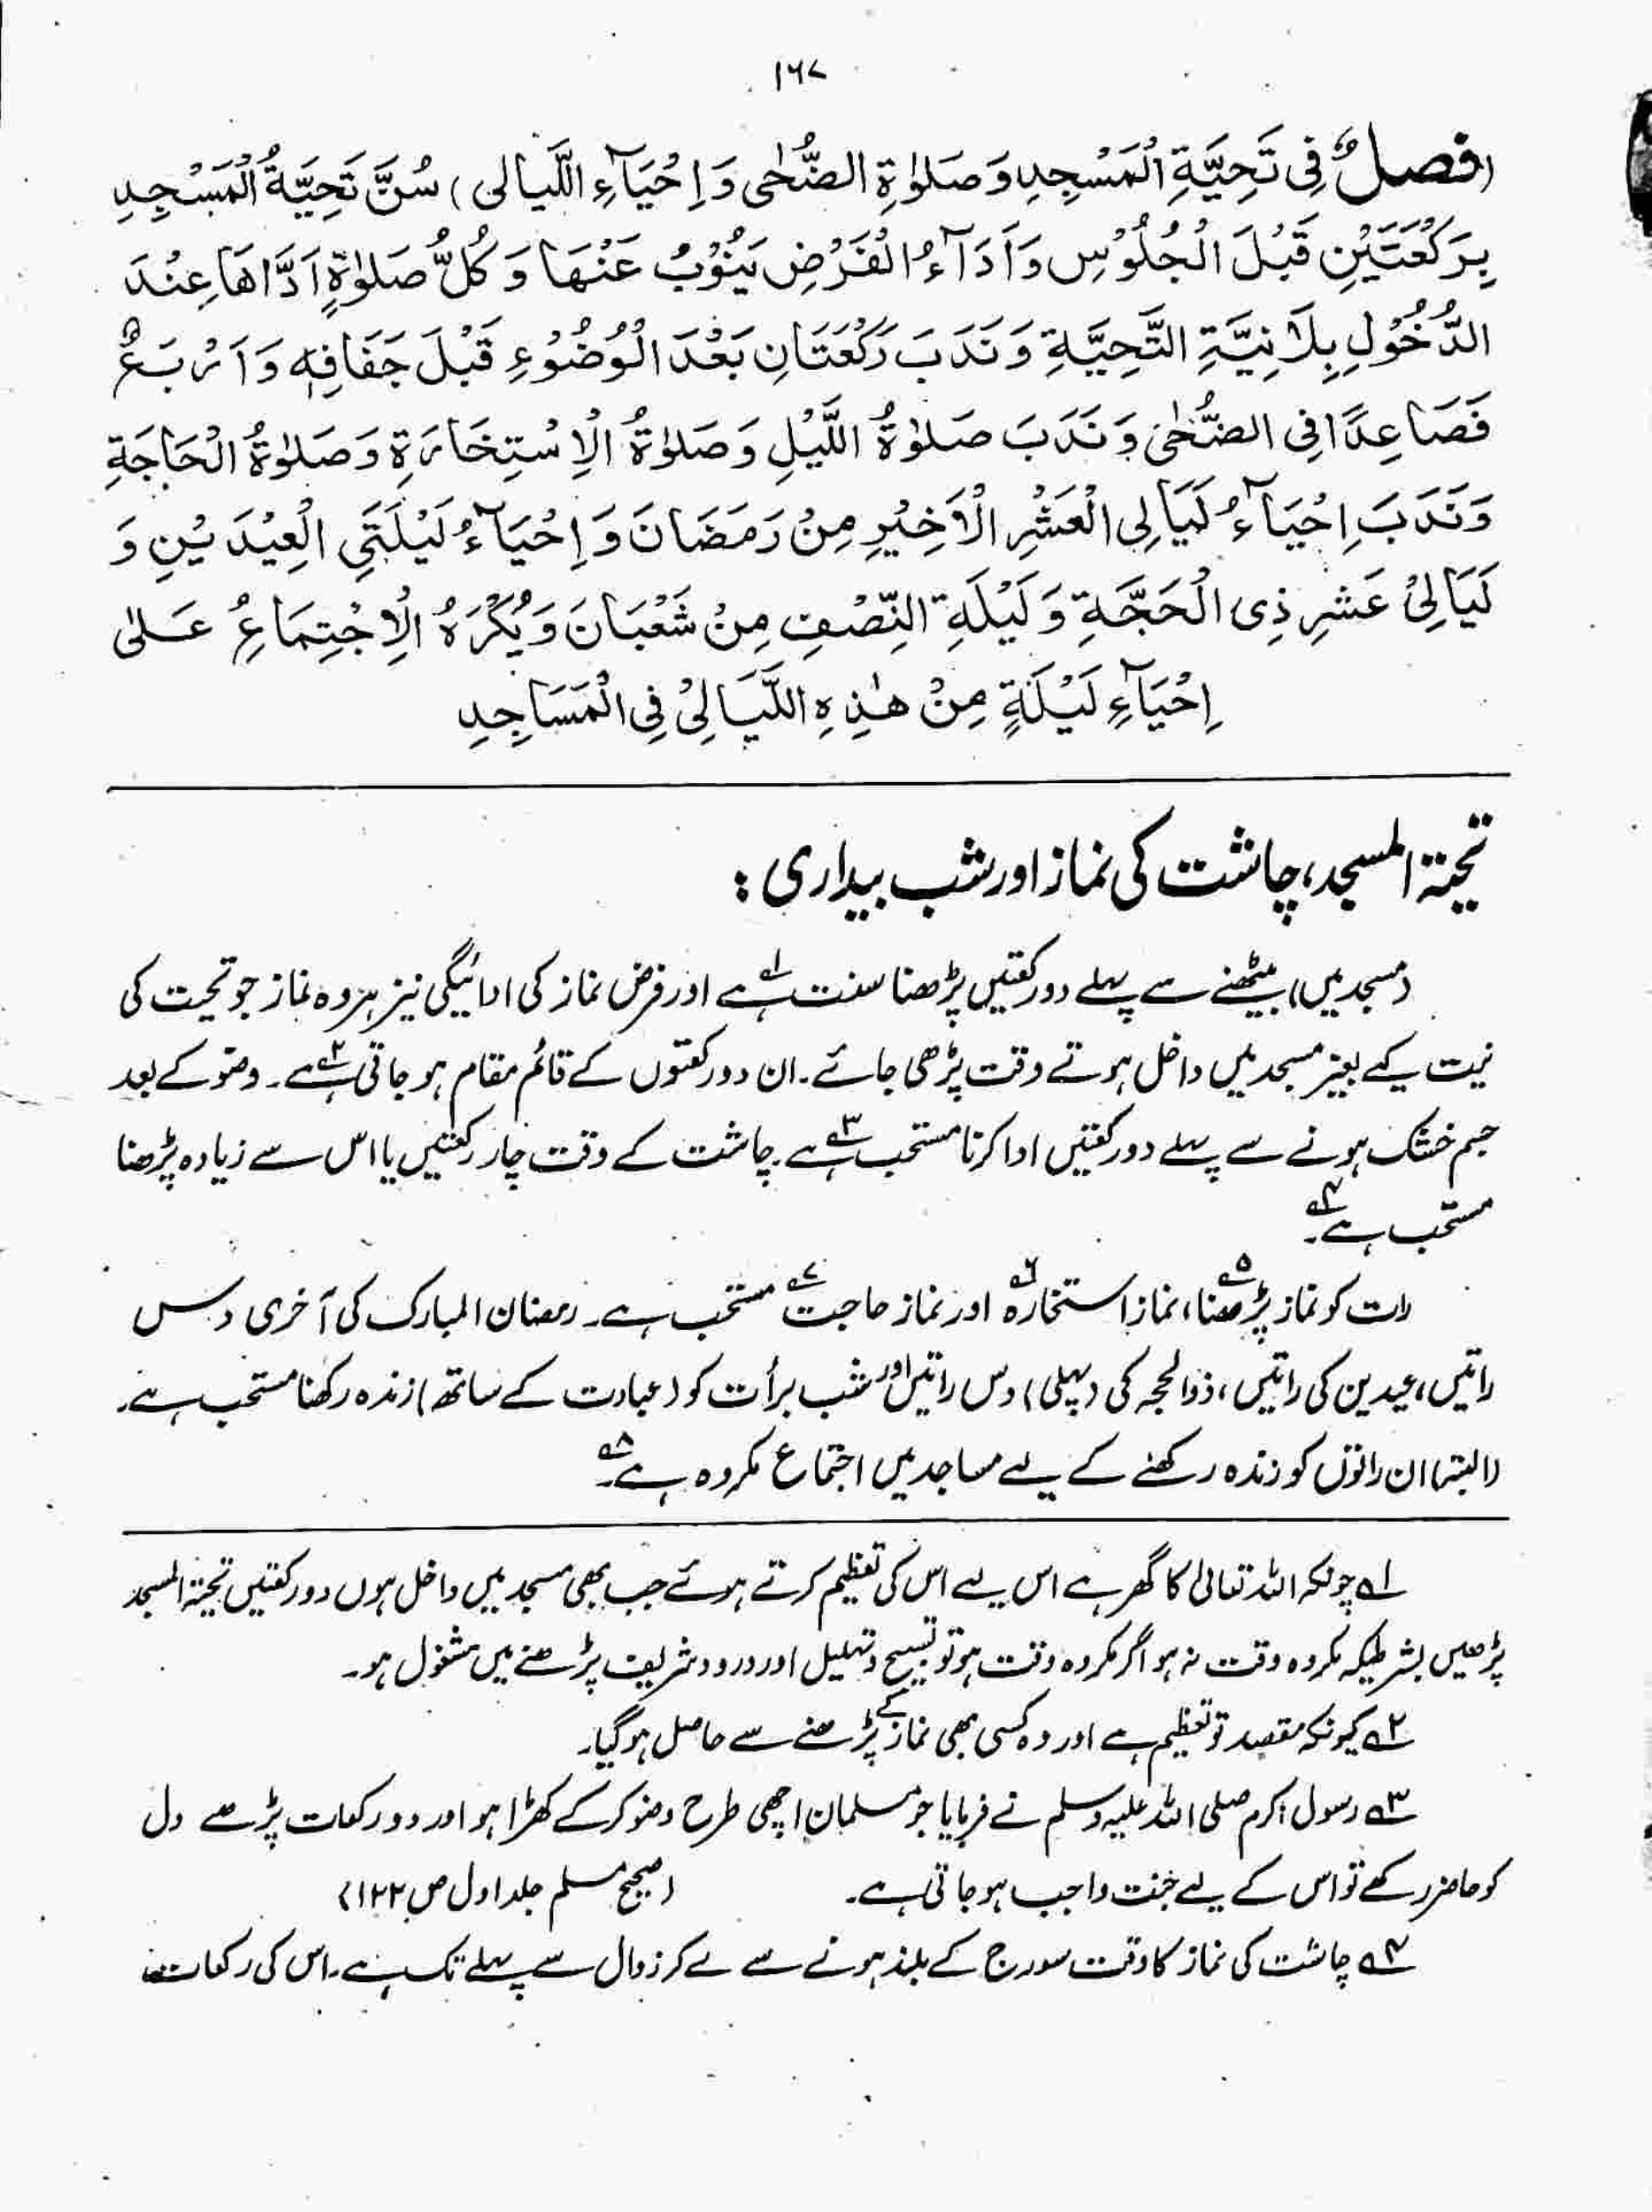 ۱۶۷
(فصلٌ فِی تَحِیَّةِ الْمَسْجِدِ وَصَلٰوةِ الضُّحٰی وَاِحْیَآءِ اللَّیَالی) سُنَّ تَحِیَّةُ الْمَسْجِدِ
بِرَكْعَتَیْنِ قَبْلَ الْجُلُوْسِ وَاَدَآءُ الْفَرْضِ یَنُوْبُ عَنْهَا وَكُلُّ صَلٰوةٍ اَدَّاهَا عِنْدَ
الدُّخُوْلِ بِلَا نِیَّةِ التَّحِیَّةِ وَنَدَبَ رَكْعَتَانِ بَعْدَ الْوُضُوْءِ قَبْلَ جَفَافِهٖ وَاَرْبَعٌ
فَصَاعِدًا فِی الضُّحٰی وَنَدَبَ صَلٰوةُ اللَّیْلِ وَصَلٰوةُ الْاِسْتِخَارَةِ وَصَلٰوةُ الْحَاجَةِ
وَنَدَبَ اِحْیَآءُ لَیَالِی الْعَشْرِ الْاَخِیْرِ مِنْ رَمَضَانَ وَاِحْیَآءُ لَیْلَتَیِ الْعِیْدَیْنِ وَ
لَیَالِیْ عَشْرِ ذِی الْحَجَّةِ وَلَیْلَةِ النِّصْفِ مِنْ شَعْبَانَ وَیُكْرَهُ الْاِجْتِمَاعُ عَلٰی
اِحْیَآءِ لَیْلَةٍ مِنْ هٰذِهِ اللَّیَالِیْ فِی الْمَسَاجِدِ
تحیۃ المسجد، چاشت کی نماز اور شب بیداری :
(مسجد میں) بیٹھنے سے پہلے دو رکعتیں پڑھنا سنت ہے۱ اور فرض نماز کی ادائیگی نیز ہر وہ نماز جو تحیت کی
نیت کیے بغیر مسجد میں داخل ہوتے وقت پڑھی جائے۔ ان دو رکعتوں کے قائم مقام ہو جاتی ہے۲۔ وضو کے بعد
جسم خشک ہونے سے پہلے دو رکعتیں ادا کرنا مستحب ہے۳۔ چاشت کے وقت چار رکعتیں یا اس سے زیادہ پڑھنا
مستحب ہے۴۔
رات کو نماز پڑھنا۵، نماز استخارہ۶ اور نماز حاجت۷ مستحب ہے۔ رمضان المبارک کی آخری دس
راتیں، عیدین کی راتیں، ذوالحجہ کی (پہلی) دس راتیں اور شب برأت کو (عبادت کے ساتھ) زندہ رکھنا مستحب ہے۔
(البتہ) ان راتوں کو زندہ رکھنے کے لیے مساجد میں اجتماع مکروہ ہے۸۔
۱؎ چونکہ اللہ تعالیٰ کا گھر ہے اس لیے اس کی تعظیم کرتے ہوئے جب بھی مسجد میں داخل ہوں دو رکعتیں تحیۃ المسجد
پڑھیں بشرطیکہ مکروہ وقت نہ ہو اگر مکروہ وقت ہو تو تسبیح و تہلیل اور درود شریف پڑھنے میں مشغول ہو۔
۲؎ کیونکہ مقصد تو تعظیم ہے اور وہ کسی بھی نماز کے پڑھنے سے حاصل ہو گیا۔
۳؎ رسول اکرم صلی اللہ علیہ وسلم نے فرمایا جو مسلمان اچھی طرح وضو کر کے کھڑا ہو اور دو رکعات پڑھے دل
کو حاضر رکھے تو اس کے لیے جنت واجب ہو جاتی ہے۔ (صحیح مسلم جلد اول ص ۱۲۲)
۴؎ چاشت کی نماز کا وقت سورج کے بلند ہونے سے لے کر زوال سے پہلے تک ہے۔ اس کی رکعات